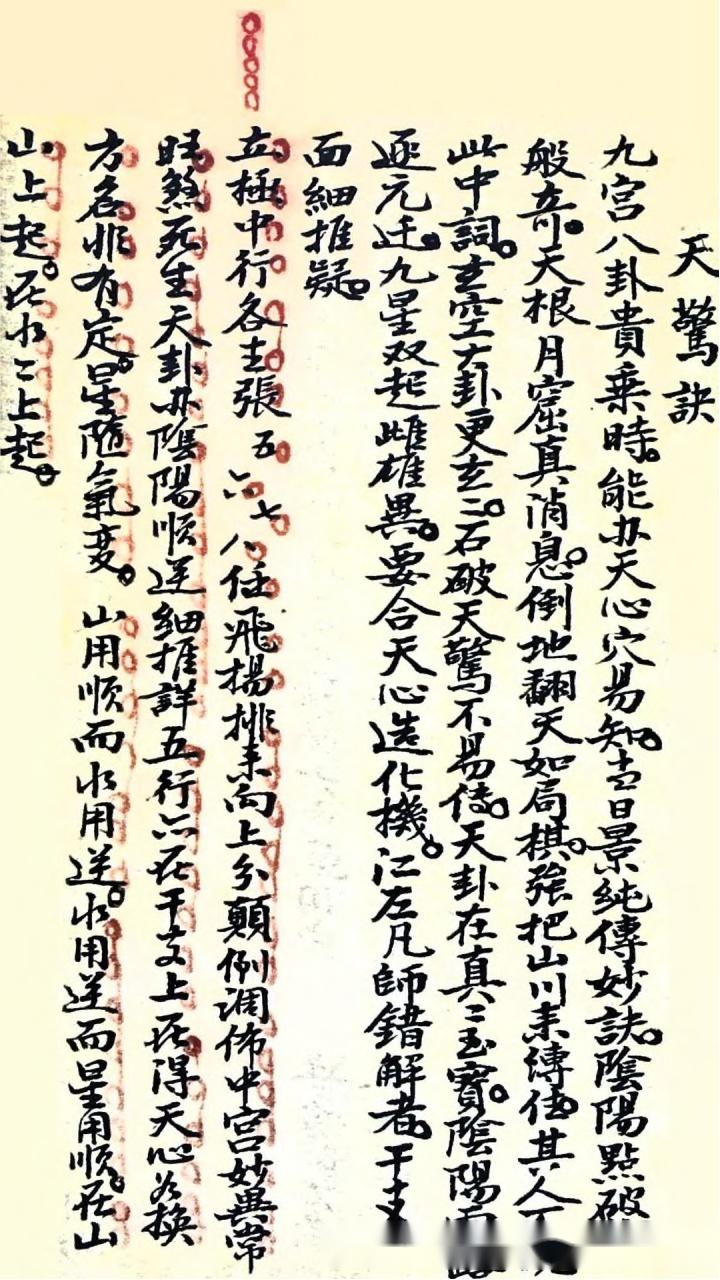 天驚訣
九宮八卦貴乘時。能办天心穴易知。昔日景純傳妙訣。陰陽點破
般奇。天根月窟真消息。倒地翻天如局棋。強把山川来缚住。其人
此中詞。玄空大卦更玄二。石破天驚不易傳。天卦在真二玉寶。陰陽
逐元迁。九星双起雌雄異。要合天心造化機。江左凡師錯解者。干支
面細推疑。
立極中行各主張 五六七八任飛揚排来向上分顛倒调佈中宮妙異常
旺煞死生天卦办陰陽順逆細推詳五行六在干支上在得天心名換
方名非有定。星隨氣变。山用順而水用逆。水用逆而星用順。在山
山上起。在水二上起。